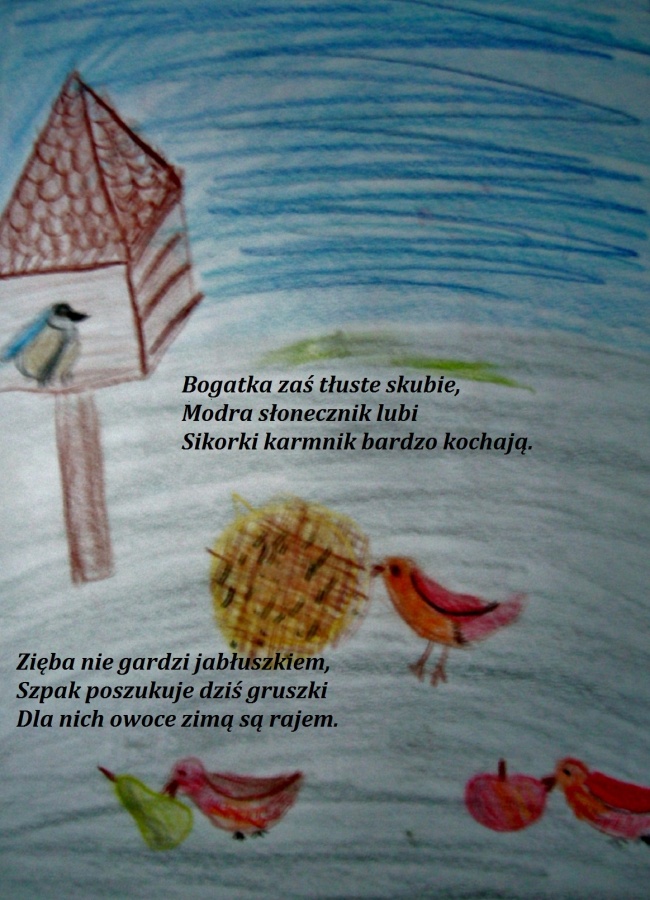 Bogatka zaś tłuste skubie,
Modra słonecznik lubi
Sikorki karmnik bardzo kochają.
Zięba nie gardzi jabłuszkiem,
Szpak poszukuje dziś gruszki
Dla nich owoce zimą są rajem.